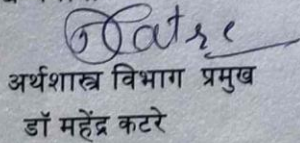 Katre
अर्थशास्त्र विभाग प्रमुख
डॉ महेंद्र कटरे